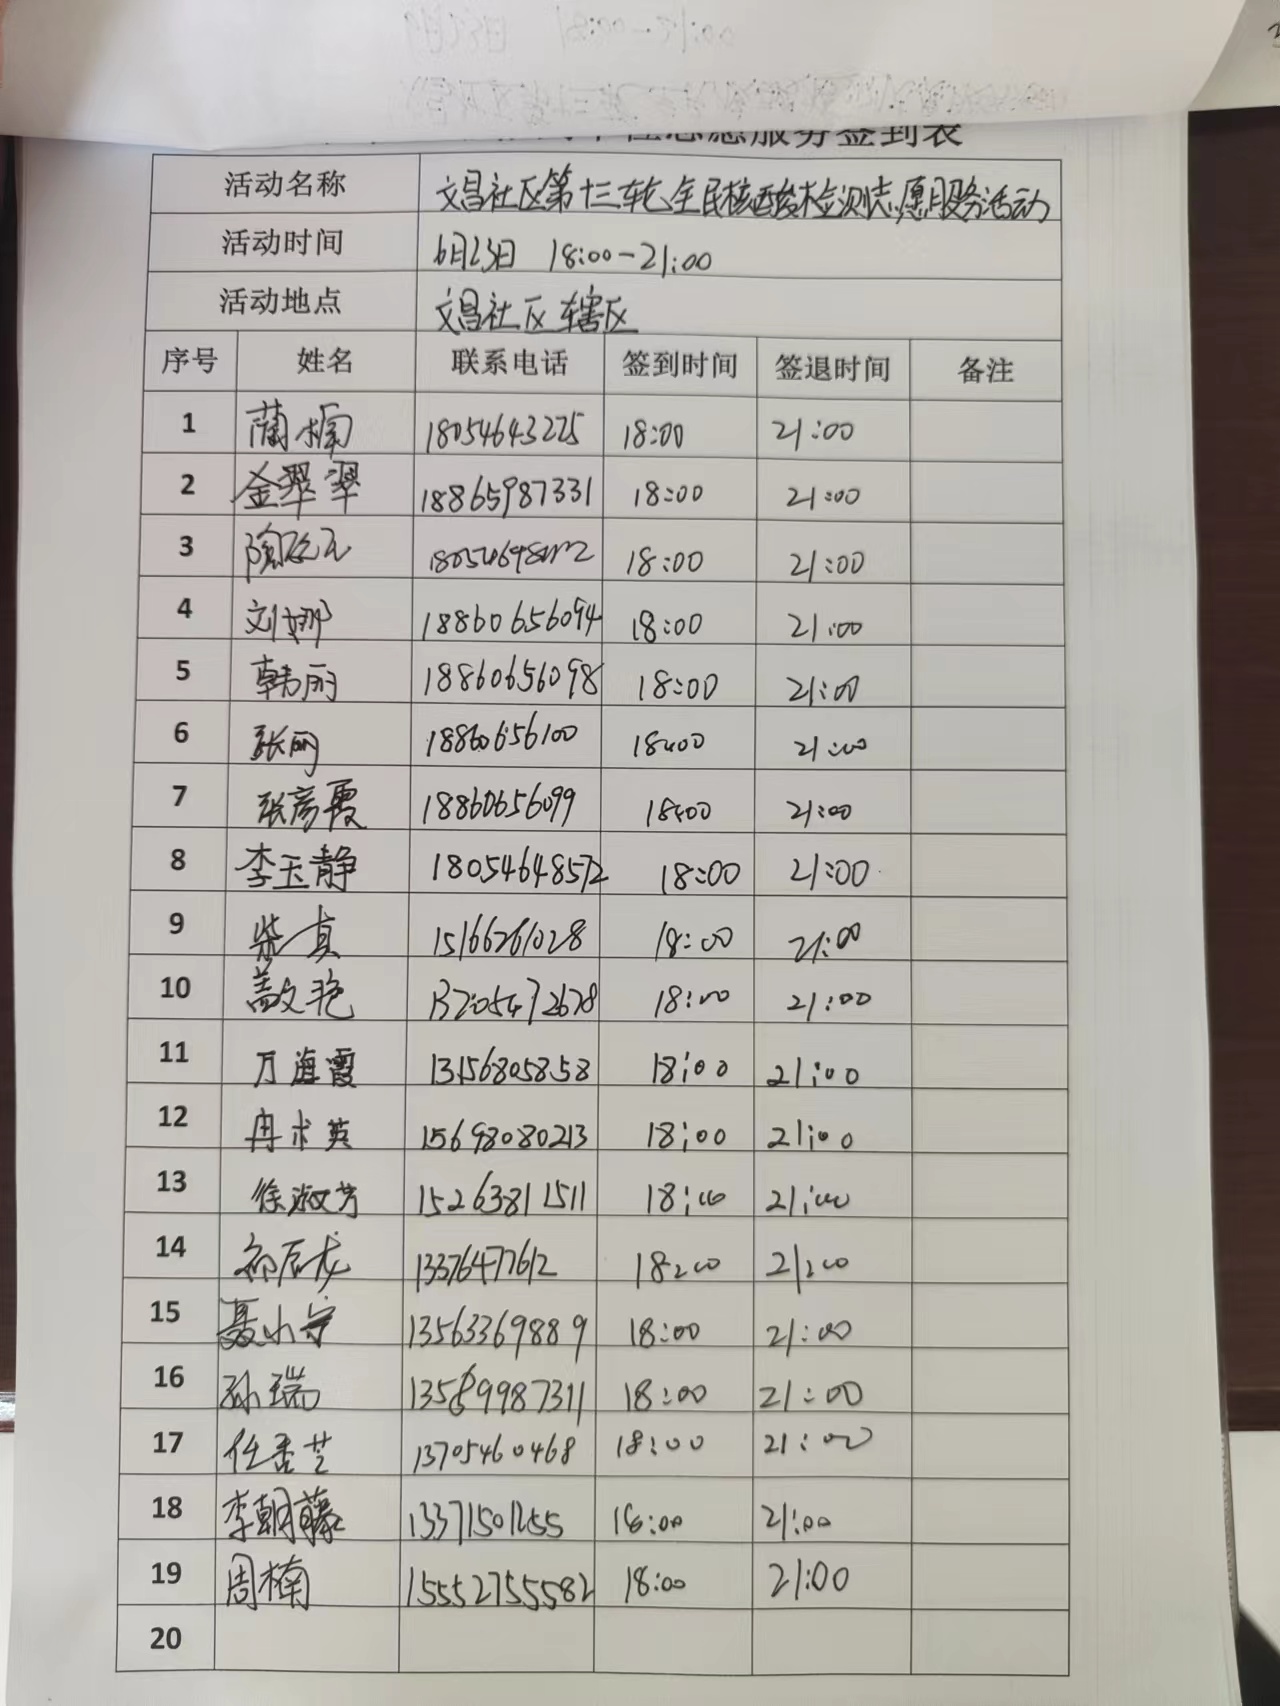 志愿服务签到表
活动名称 文昌社区第十三轮全民核酸检测志愿服务活动
活动时间 6月23日 18:00-21:00
活动地点 文昌社区辖区
序号 姓名 联系电话 签到时间 签退时间 备注
1 蔺楠 18054643225 18:00 21:00
2 金翠翠 18865987331 18:00 21:00
3 18:00 21:00
4 刘娜 18860656094 18:00 21:00
5 韩丽 18860656098 18:00 21:00
6 张丽 18860656100 18:00 21:00
7 张彦霞 18860656099 18:00 21:00
8 李玉静 18054648572 18:00 21:00
9 柴真 15166261028 18:00 21:00
10 盖文艳 13205472678 18:00 21:00
11 万海霞 13156805858 18:00 21:00
12 冉术英 15698080213 18:00 21:00
13 徐淑芳 15263811511 18:00 21:00
14 13376477612 18:00 21:00
15 聂小宁 13563369889 18:00 21:00
16 孙瑞 13589987311 18:00 21:00
17 任香芝 13705460468 18:00 21:00
18 李朝藤 13371501255 18:00 21:00
19 周楠 15552755582 18:00 21:00
20